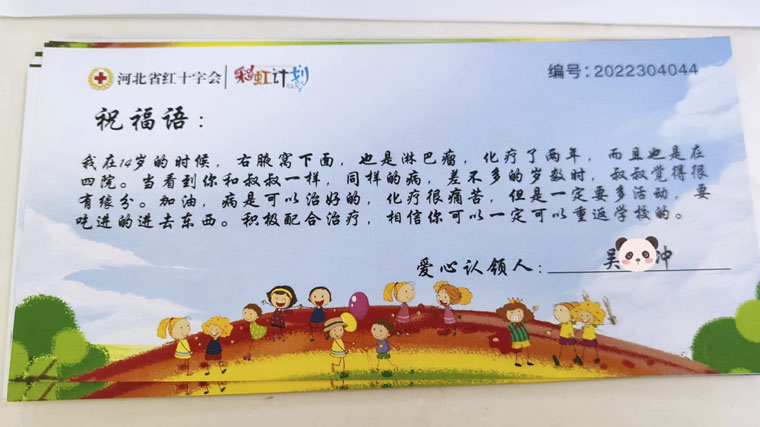 河北省红十字会 彩虹计划 编号:2022304044
祝福语:
我在14岁的时候,右腋窝下面,也是淋巴瘤,化疗了两年,而且也是在
四院。当看到你和叔叔一样,同样的病,差不多的岁数时,叔叔觉得很
有缘分。加油,病是可以治好的,化疗很痛苦,但是一定要多活动,要
吃进的进去东西。积极配合治疗,相信你可以一定可以重返学校的。
爱心认领人:吴 冲